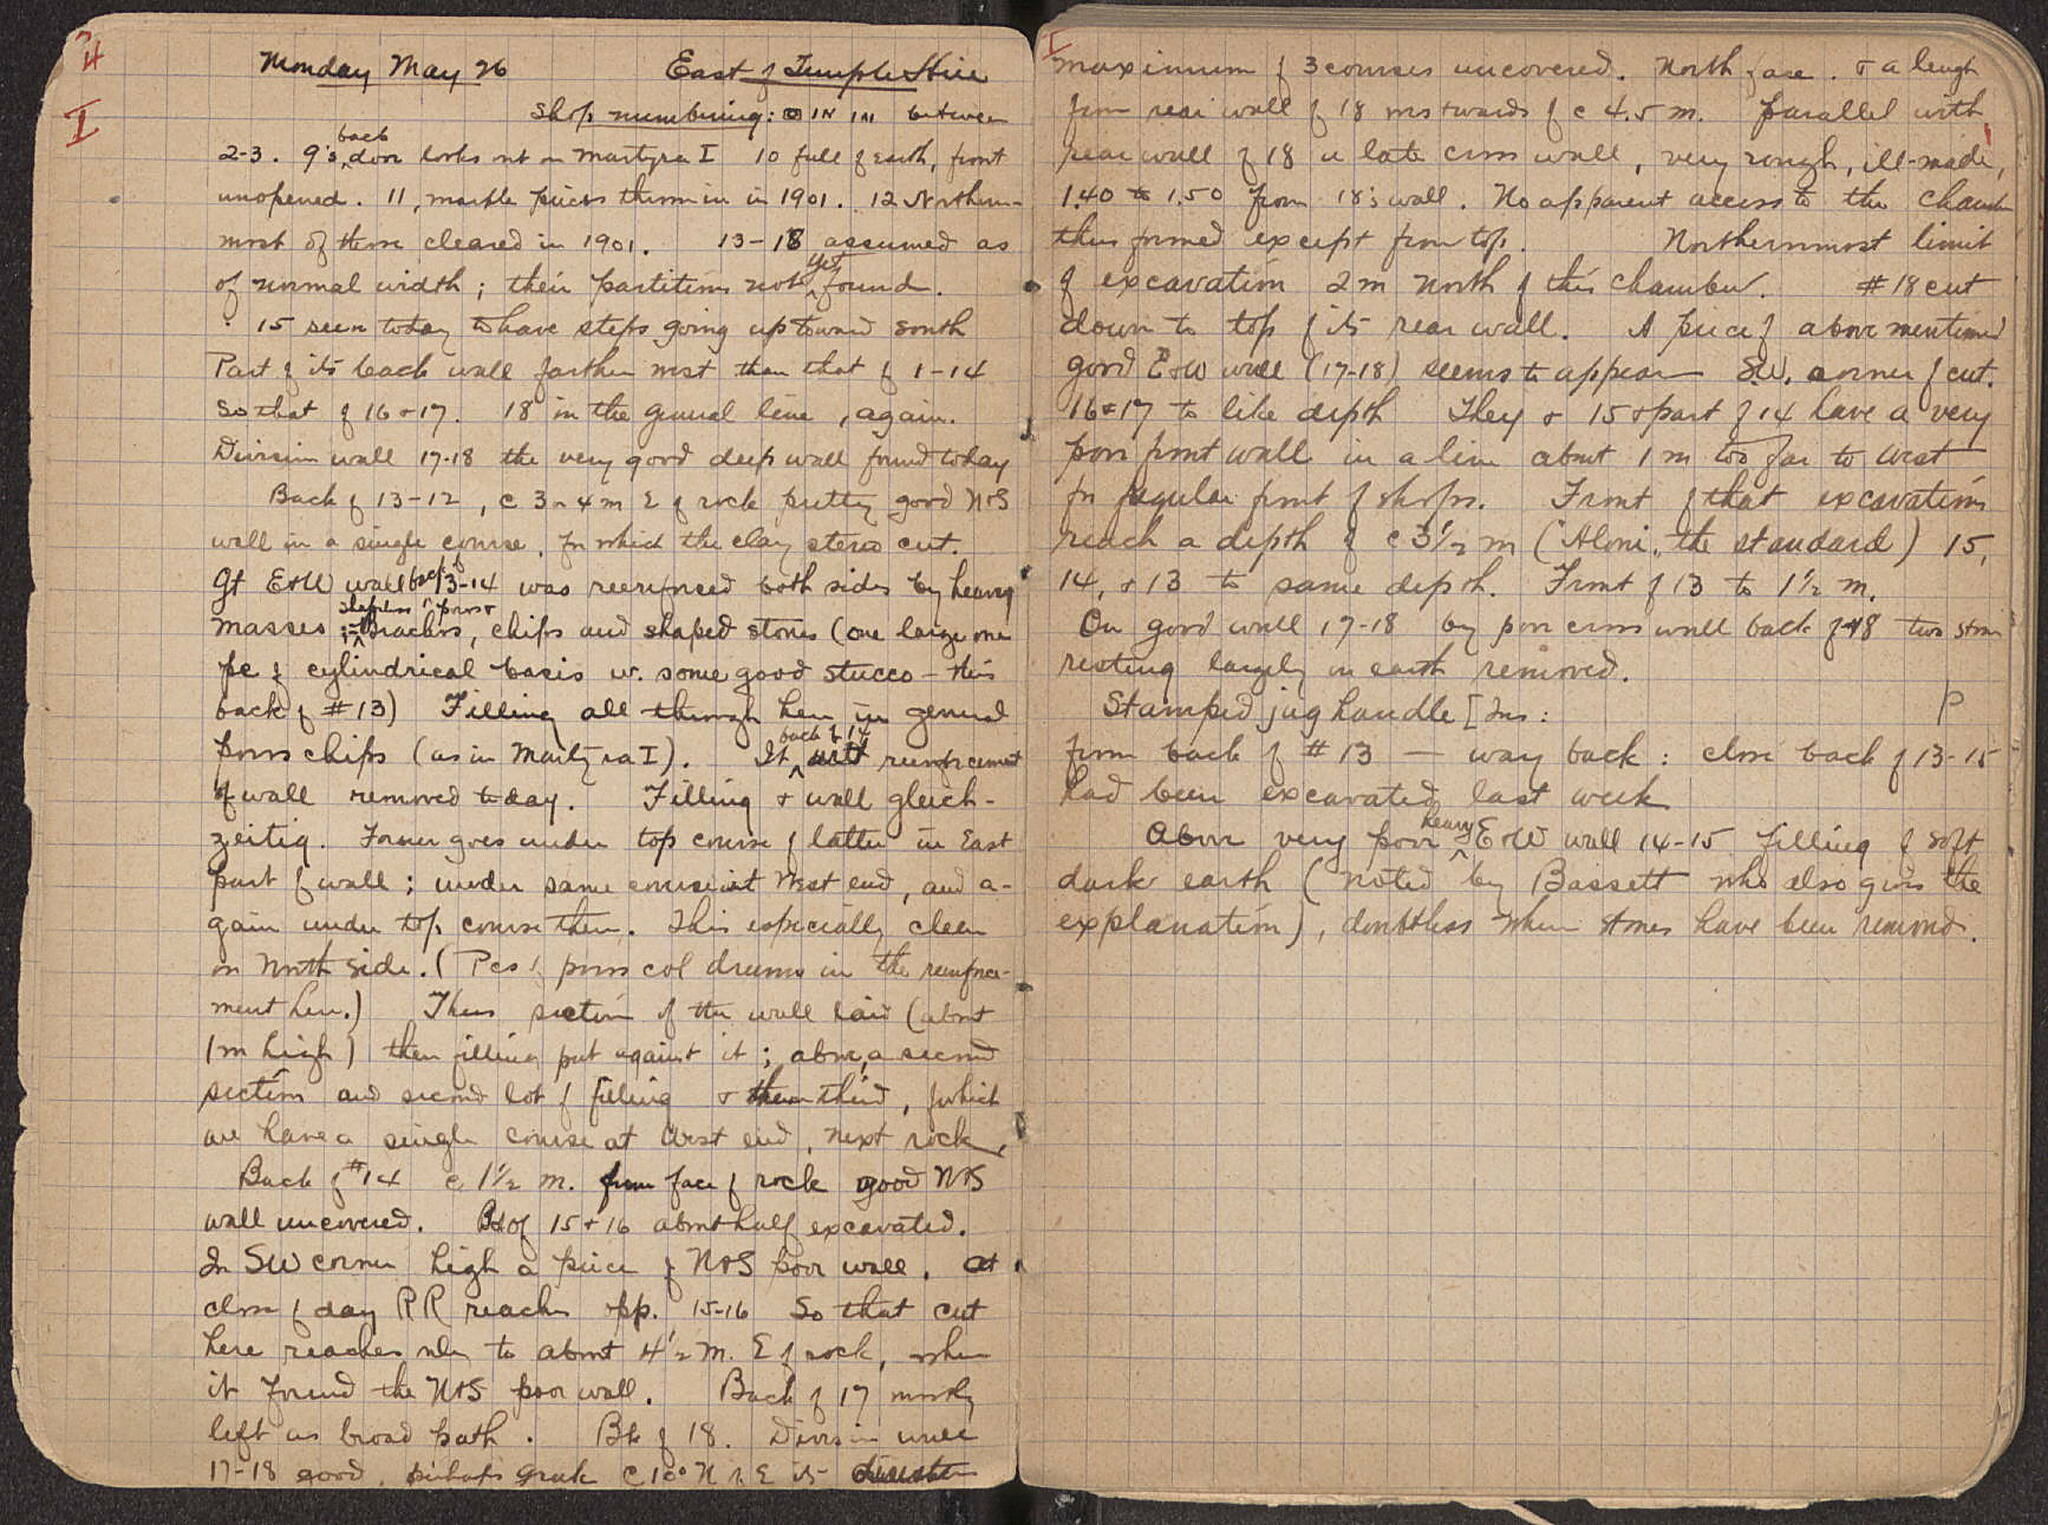 4
I
Monday May 26 East of Temple Hill
Shop numbering: between
2-3. 9's back door looks out on Martyra I 10 full of earth, front
unopened. 11, marble pieces therein in 1901. 12 Northern-
most of those cleared in 1901. 13-18 assumed as
of normal width; their partitions not yet found.
15 seen today to have steps going up toward south
Part of its back wall farther west than that of 1-14
So that of 16 + 17. 18 in the general line, again.
Division wall 17-18 the very good deep wall found today
Back of 13-12, c 3 or 4 m E of rock pretty good N+S
wall in a single course, for which the clay stereo cut.
Gt E+W wall back of 13-14 was reenforced both sides by heavy
masses shapeless poros + chips and shaped stones (one large one
pc of cylindrical basis w. some good stucco – this
back of #13) Filling all through here in general
poros chips (as in Martyra I). It back of 14 reenforcement
of wall removed today. Filling + wall gleich-
zeitig. Former goes under top course of latter in East
part of wall; under same course at West end, and a-
gain under top course there. This especially clear
on North side. (Pcs of poros col drums in the reenforce-
ment here.) Thus section of the wall laid (about
1 m high) then filling put against it; above, a second
section and second lot of filling + then third, of which
we have a single course at West end, next rock,
Back of #14 c 1½ m. from face of rock good N+S
wall uncovered. Bk of 15 + 16 about half excavated.
In SW corner high a piece of N+S poor wall. At
close of day RR reaches opp. 15-16 So that cut
here reaches only to about 4½ m. E of rock, when
it found the N+S poor wall. Back of 17 mostly
left as broad path. Bk of 18. Division wall
17-18 good, perhaps Greek c 10° N of E its
I
maximum of 3 courses uncovered. North face. + a length
from rear wall of 18 westwards of c 4.5 m. Parallel with
rear wall of 18 a late cross wall, very rough, ill-made,
1.40 to 1.50 from 18's wall. No apparent access to the chamber
thus formed except from top. Northernmost limit
of excavation 2 m North of this chamber. #18 cut
down to top of its rear wall. A piece of above mentioned
good E+W wall (17-18) seems to appear S.W. corner of cut.
16+17 to like depth They + 15 + part of 14 have a very
poor front wall in a line about 1 m too far to West
for regular front of shops. Front of that excavations
reach a depth of c 3½ m ("Aloni" the standard) 15,
14, + 13 to same depth. Front of 13 to 1½ m.
On good wall 17-18 by poor cross wall back of 18 two stones
resting largely in earth removed.
Stamped jug handle [Ins: P
from back of #13 — way back: close back of 13-15
had been excavated last week
Above very poor heavy E+W wall 14-15 filling of soft
dark earth (noted by Bassett who also gives the
explanation), doubtless when stones have been removed.